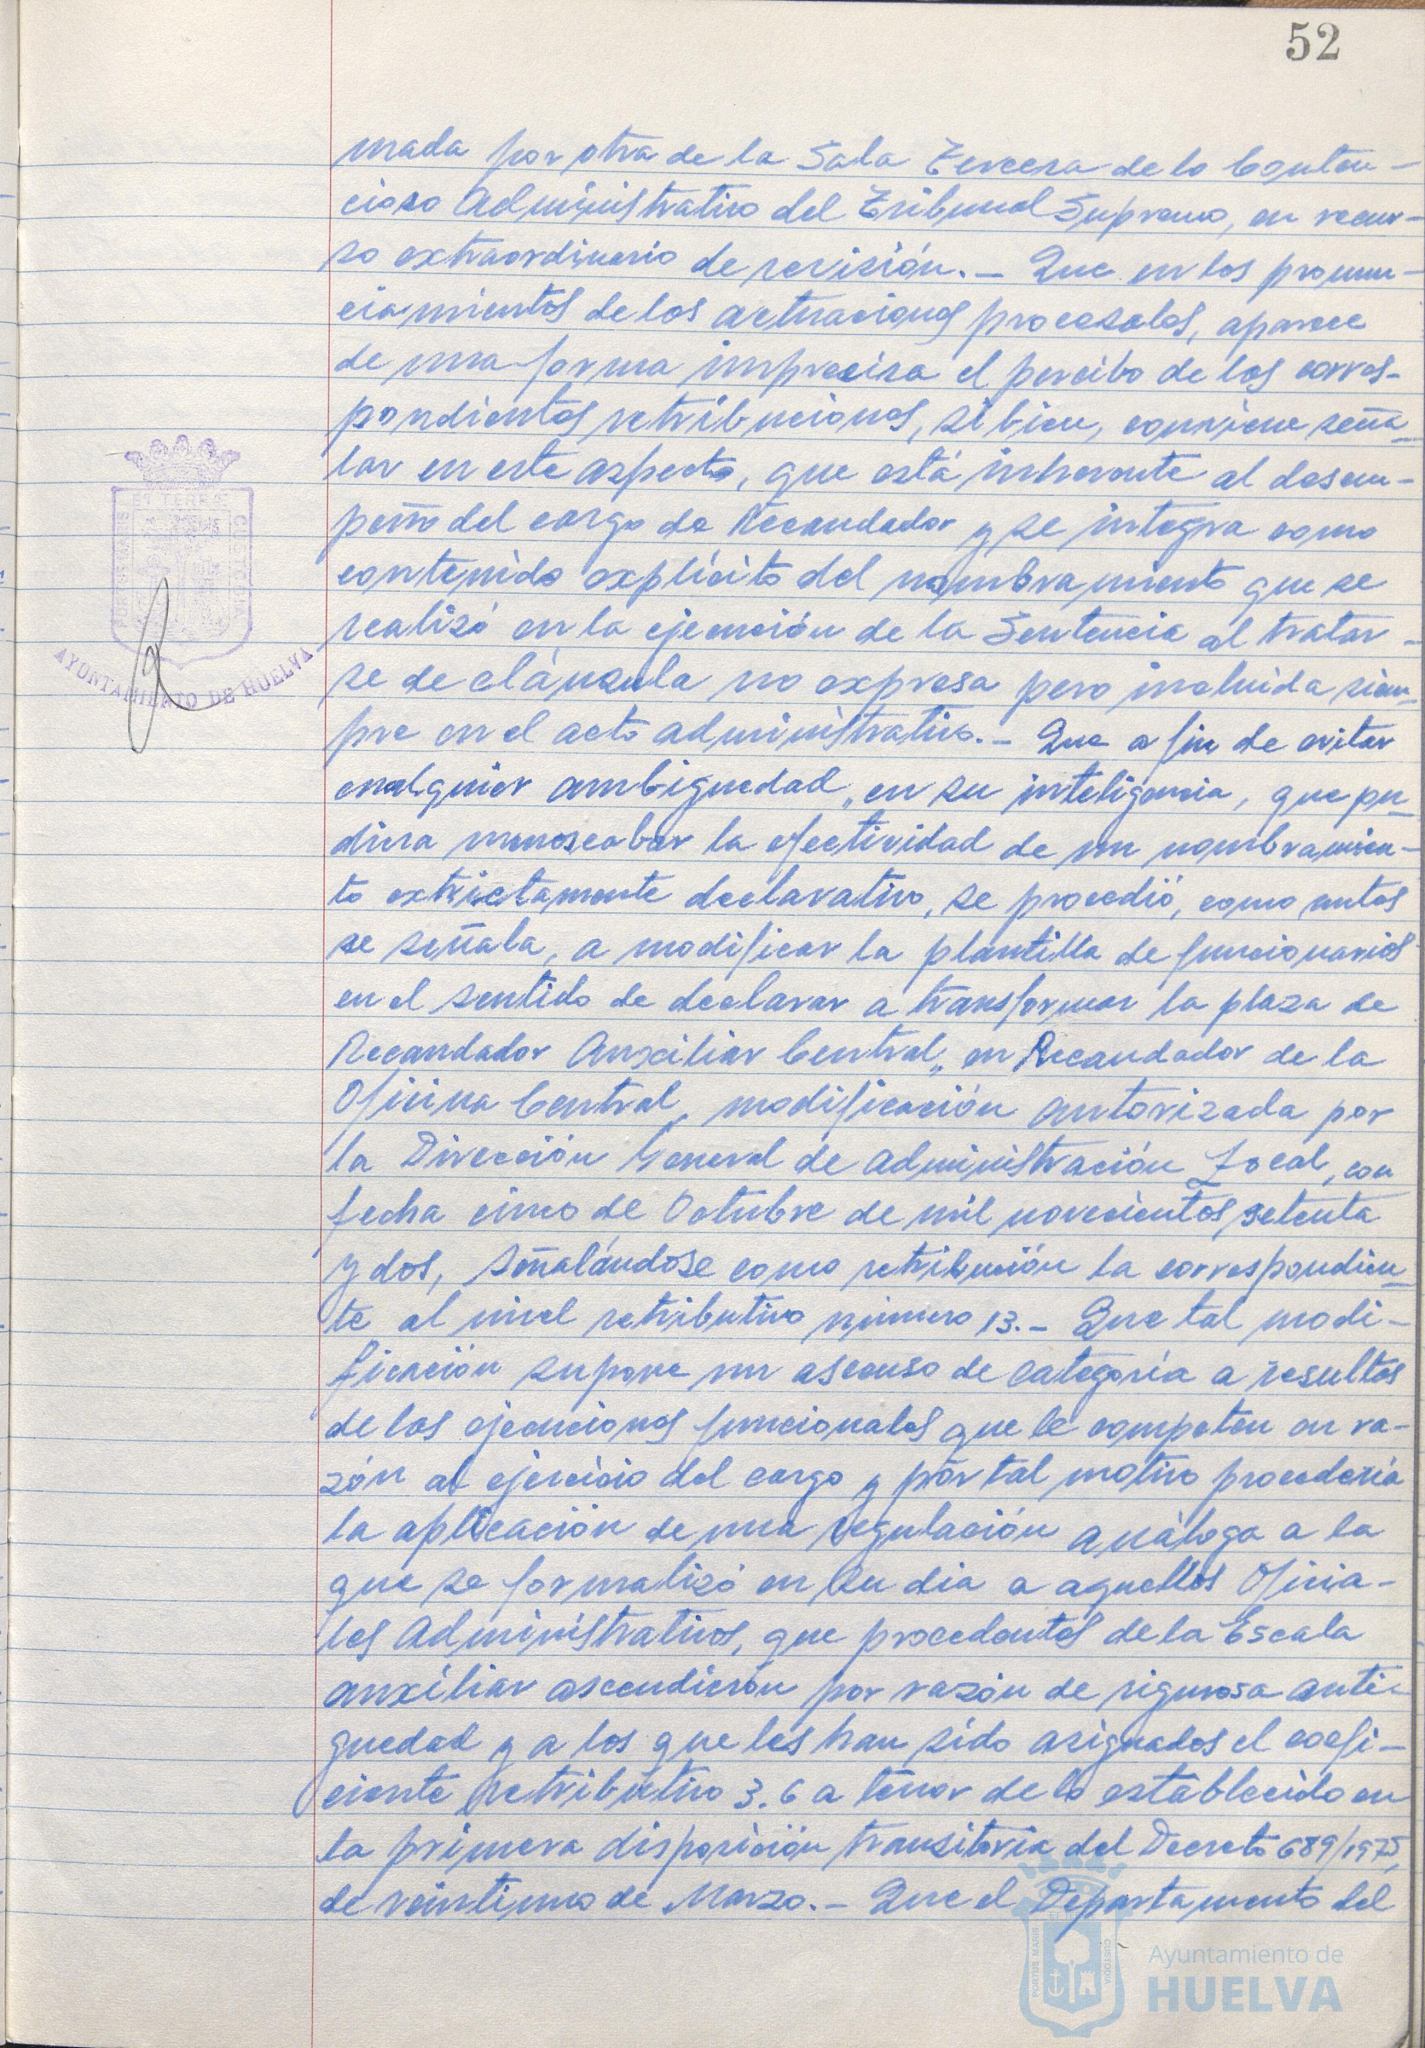 52
mada por otra de la Sala Tercera de lo Conten-
cioso Administrativo del Tribunal Supremo, en recur-
so extraordinario de revisión.- Que en los pronun-
ciamientos de los actuaciones procesales, aparece
de una forma imprecisa el percibo de las corres-
pondientes retribuciones, si bien, conviene seña-
lar en este aspecto, que está inherente al desem-
peño del cargo de Recaudador y se integra como
contenido explícito del nombramiento que se
realizó en la ejecución de la Sentencia al tratar-
se de cláusula no expresa pero incluida siem-
pre en el acto administrativo.- Que a fin de evitar
cualquier ambiguedad, en su inteligencia, que pu-
diera menoscabar la efectividad de un nombramien-
to extrictamente declarativo, se procedió, como antes
se señala, a modificar la plantilla de funcionarios
en el sentido de declarar a transformar la plaza de
Recaudador Auxiliar Central, en Recaudador de la
Oficina Central, modificación autorizada por
la Dirección General de Administración Local, con
fecha cinco de Octubre de mil novecientos setenta
y dos, señalándose como retribución la correspondien-
te al nivel retributivo número 13.- Que tal modi-
ficación supone un ascenso de categoría a resultas
de las ejecuciones funcionales que le competen en ra-
zón al ejercicio del cargo y por tal motivo procedería
la aplicación de una regulación análoga a la
que se formalizó en su dia a aquellos Oficia-
les Administrativos, que procedentes de la Escala
auxiliar ascendieron por razón de rigurosa anti-
guedad y a los que les han sido asignados el coefi-
ciente retributivo 3.6 a tenor de lo establecido en
la primera disposición transitoria del Decreto 689/1975,
de veintiuno de Marzo.- Que el Departamento del
PORTUS MARIS
ET TERRE
CUSTODIA
AYUNTAMIENTO DE HUELVA
PORTUS MARIS
CUSTODIA
Ayuntamiento de
HUELVA